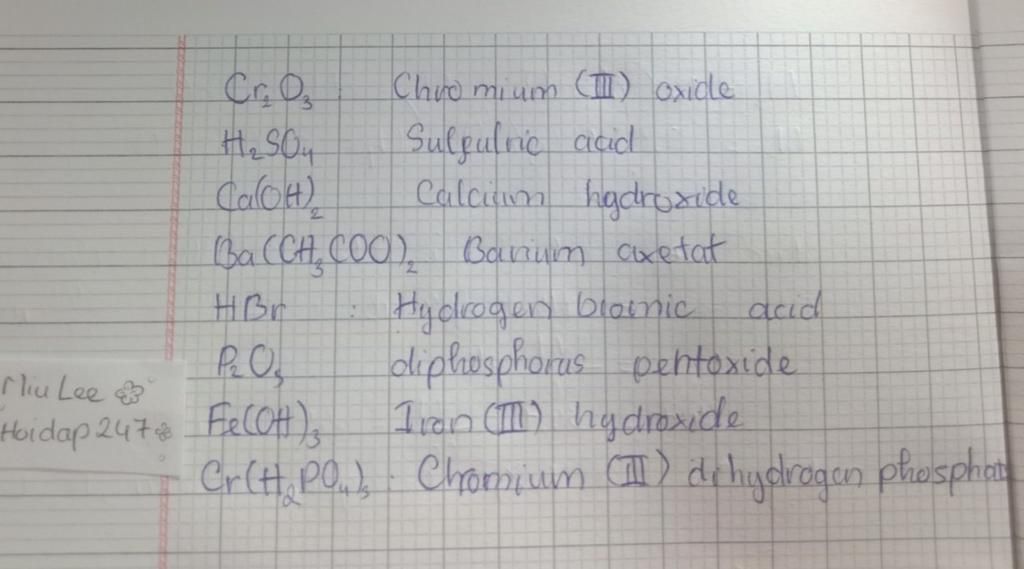 Cr₂O₃ Chromium (III) oxide
H₂SO₄ Sulfulric acid
Ca(OH)₂ Calcium hydroxide
Ba(CH₃COO)₂ Barium axetat
HBr : Hydrogen bromic acid
P₂O₅ diphosphorus pentoxide
Fe(OH)₃ Iron (III) hydroxide
Cr(H₂PO₄)₃ : Chromium (III) dihydrogen phosphat
Miu Lee
Hoidap247